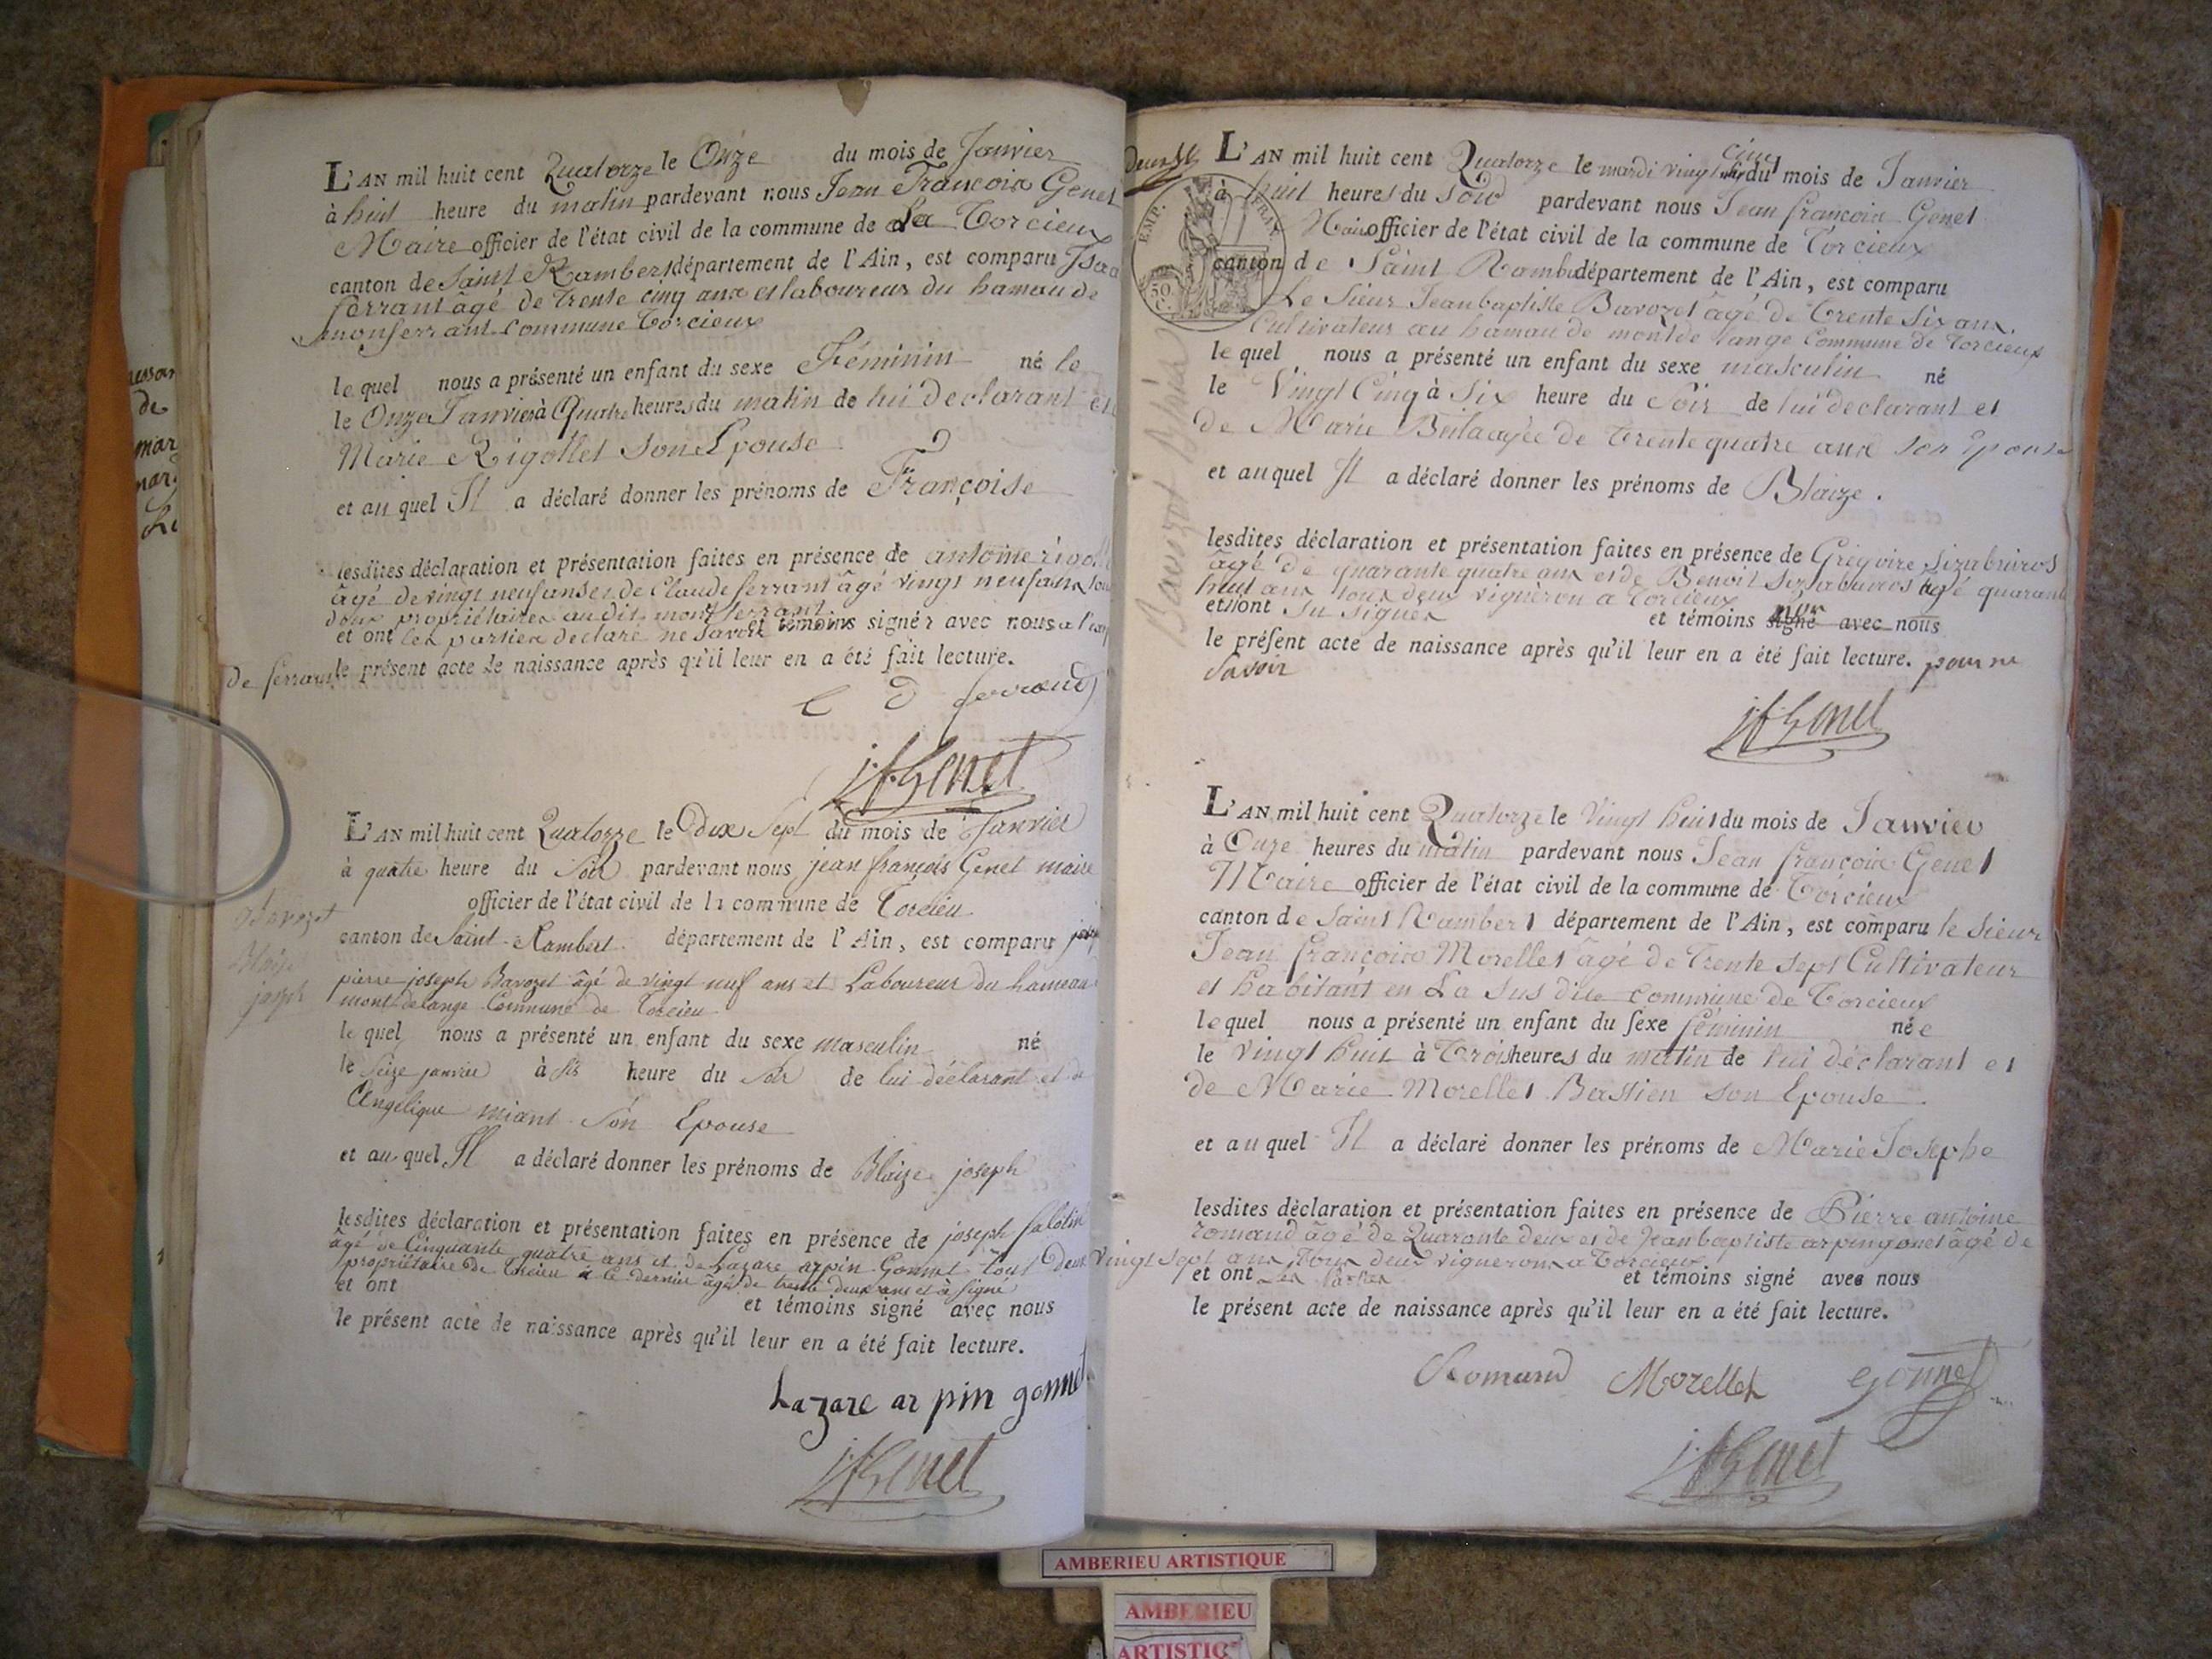 L'AN mil huit cent Quatorze le Onze du mois de Janvier
à huit heure du matin pardevant nous Jean François Genet
Maire officier de l'état civil de la commune de Torcieux
canton de Saint Rambert département de l'Ain, est comparu
ferrant âgé de trente cinq ans et laboureur du hamau de
monferrant Commune Torcieux
le quel nous a présenté un enfant du sexe Féminin né le
le Onze Janvier à Quatre heures du matin de lui declarant et
Marie Rigollet son Epouse
et au quel Il a déclaré donner les prénoms de Françoise
lesdites déclaration et présentation faites en présence de antoine
âgé de vingt neuf ans et de Claude ferrant âgé vingt neuf ans
deux propriétaires audit mont ferrant
et ont les parties declaré ne savoir et témoins signér avec nous
de ferrant le présent acte de naissance après qu'il leur en a été fait lecture.
C D ferrand
j.f. Genet
L'AN mil huit cent Quatorze le dix sept du mois de Janvier
à quatre heure du soir pardevant nous jean françois Genet maire
officier de l'état civil de la commune de Torcieu
canton de Saint-Rambert département de l'Ain, est comparu
pierre joseph Bavozet âgé de vingt neuf ans et Laboureur du hameau
mont delange Commune de Torcieu
le quel nous a présenté un enfant du sexe masculin né
le seize janvier à six heure du soir de lui déclarant et de
Angelique miant son Epouse
et au quel Il a déclaré donner les prénoms de Blaize joseph
lesdites déclaration et présentation faites en présence de joseph
âgé de Cinquante quatre ans et de Lazare arpin Gonnet tous deux
propriétaire de Torcieu le dernier âgé de trente deux ans et à signé
et ont et témoins signé avec nous
le présent acte de naissance après qu'il leur en a été fait lecture.
Lazare ar pin gonnet
j.f. Genet
Bavozet
Blaize
joseph
L'AN mil huit cent Quatorze le mardi vingt cinq du mois de Janvier
à huit heures du soir pardevant nous Jean françois Genet
Maire officier de l'état civil de la commune de Torcieux
canton de Saint Rambert département de l'Ain, est comparu
Le Sieur Jean baptiste Bavozet âgé de trente six ans
Cultivateur au hamau de mont de lange Commune de Torcieux
le quel nous a présenté un enfant du sexe masculin né
le Vingt Cinq à Six heure du soir de lui declarant et
de Marie agée de trente quatre ans son Epouse
et au quel Il a déclaré donner les prénoms de Blaize.
lesdites déclaration et présentation faites en présence de Grégoire
âgé de quarante quatre ans et de Benoit âgé quarante
huit ans tous deux vigneron a Torcieux
et ont su signer et témoins non signé avec nous
le présent acte de naissance après qu'il leur en a été fait lecture. pour ne
savoir
j.f. Genet
Bavozet Blaize
EMP. FRAN.
50 C.
L'AN mil huit cent Quatorze le Vingt huit du mois de Janvier
à Onze heures du matin pardevant nous Jean françois Genet
Maire officier de l'état civil de la commune de Torcieux
canton de Saint Rambert département de l'Ain, est comparu le Sieur
Jean françois Morellet âgé de trente sept Cultivateur
et habitant en La sus dite commune de Torcieux
le quel nous a présenté un enfant du sexe féminin née
le vingt huit à Trois heures du matin de lui déclarant et
de Marie Morellet Bastien son Epouse
et au quel Il a déclaré donner les prénoms de Marie Josephe
lesdites déclaration et présentation faites en présence de Pierre antoine
romand âgé de Quarante deux et de Jean baptiste arpin gonet âgé de
Vingt sept ans tous deux vignerons a Torcieux
et ont les parties et témoins signé avec nous
le présent acte de naissance après qu'il leur en a été fait lecture.
Romand Morellet gonnet
j.f. Genet
AMBERIEU ARTISTIQUE
AMBERIEU
ARTISTIQ